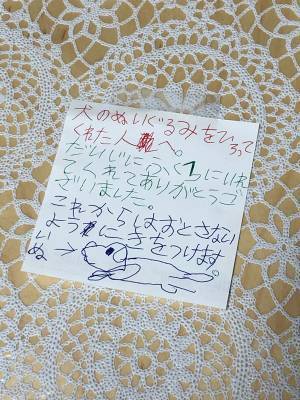 犬のぬいぐるみをひろって
くれた人へ
だいじにふくろにいれ
てくれてありがとうご
ざいました。
これからはおとさない
ように気をつけます。
いぬ→